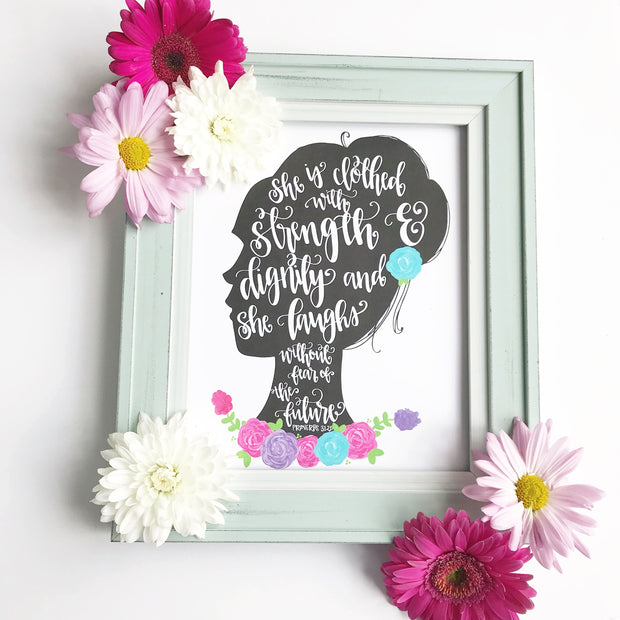 she is clothed
with
strength &
dignity and
she laughs
without
fear of
the
future
PROVERBS 31:25